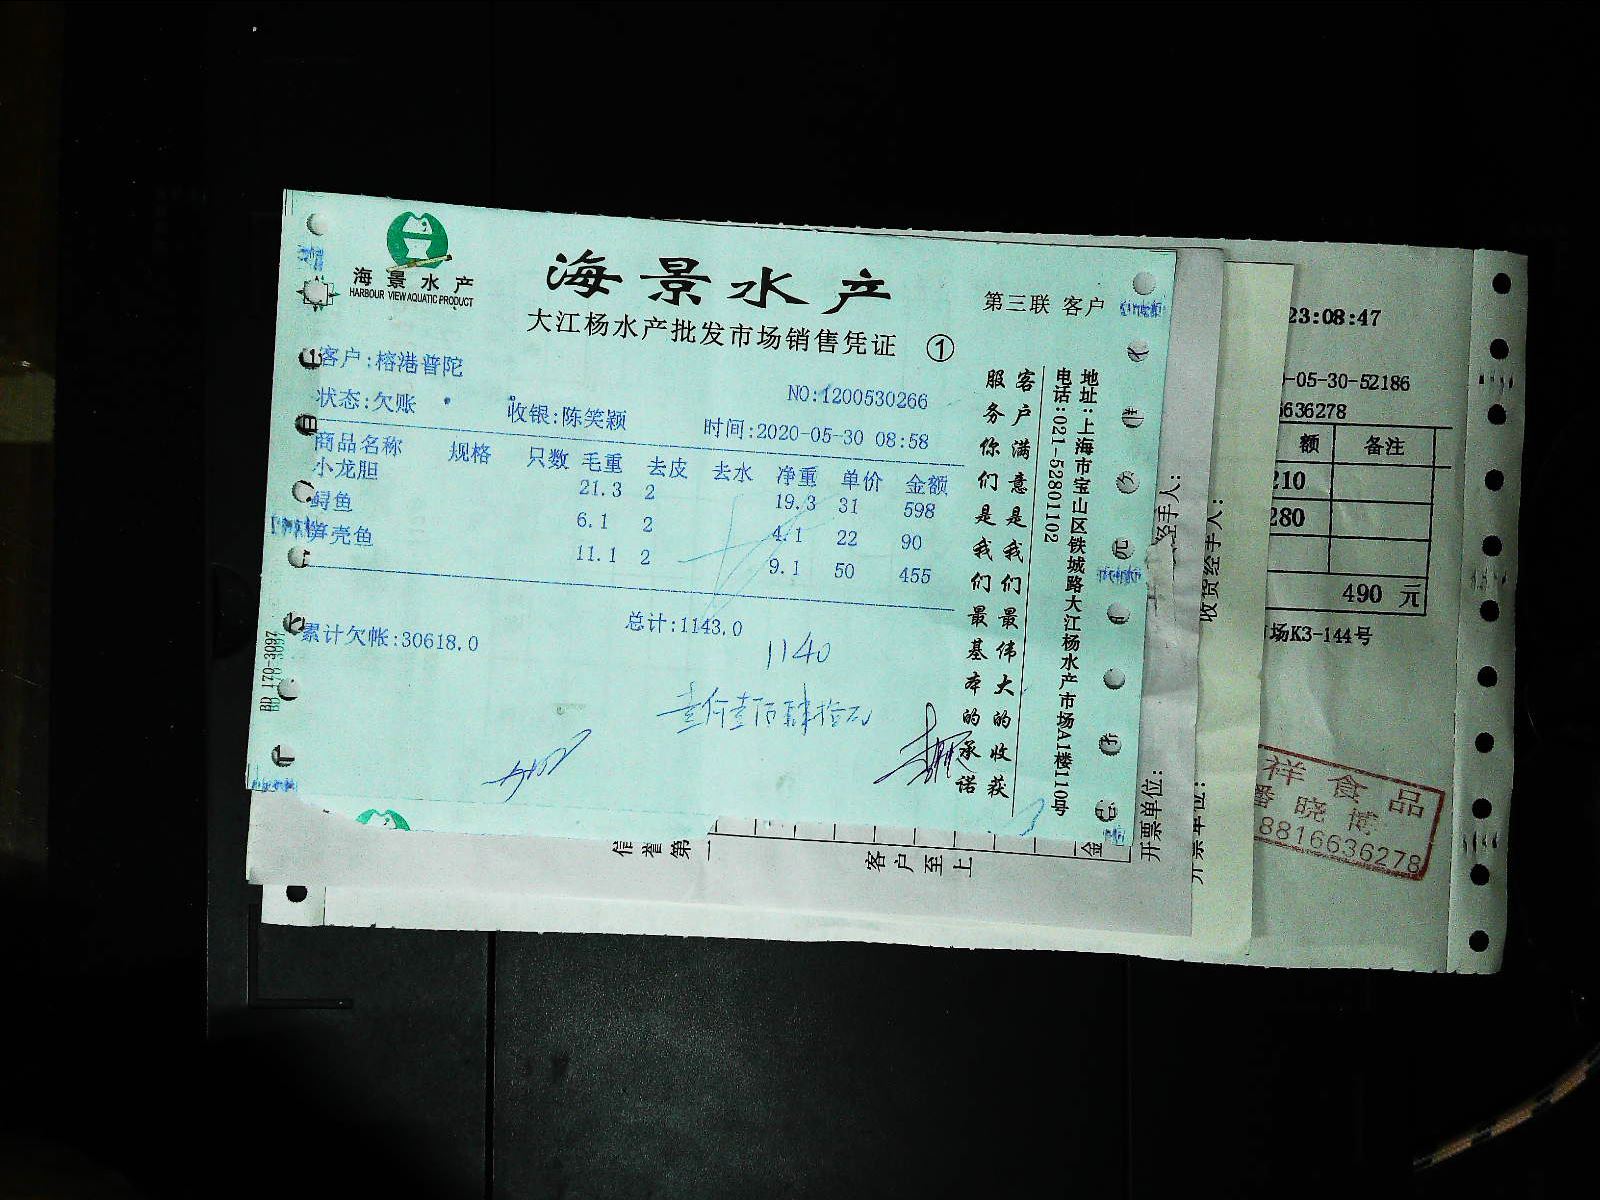 海景水产
HARBOUR VIEW AQUATIC PRODUCT
海景水产
大江杨水产批发市场销售凭证 ①
第三联 客户
客户:榕港普陀
NO:1200530266
状态:欠账 收银:陈笑颖 时间:2020-05-30 08:58
商品名称 规格 只数 毛重 去皮 去水 净重 单价 金额
小龙胆 21.3 2 19.3 31 598
鲟鱼 6.1 2 4.1 22 90
笋壳鱼 11.1 2 9.1 50 455
累计欠帐:30618.0 总计:1143.0
1140
壹仟壹佰肆拾元
客户满意是我们最伟大的收获
服务你们是我们最基本的承诺
地址:上海市宝山区铁城路大江杨水产市场A1楼110号
电话:021-52801102
BD 170-3097
信誉第一
客户至上
金
经手人:
开票单位:
收货经手人:
开票单位:
23:08:47
-05-30-52186
6636278
额 备注
210
280
490 元
场K3-144号
祥食品
潘晓博
8816636278